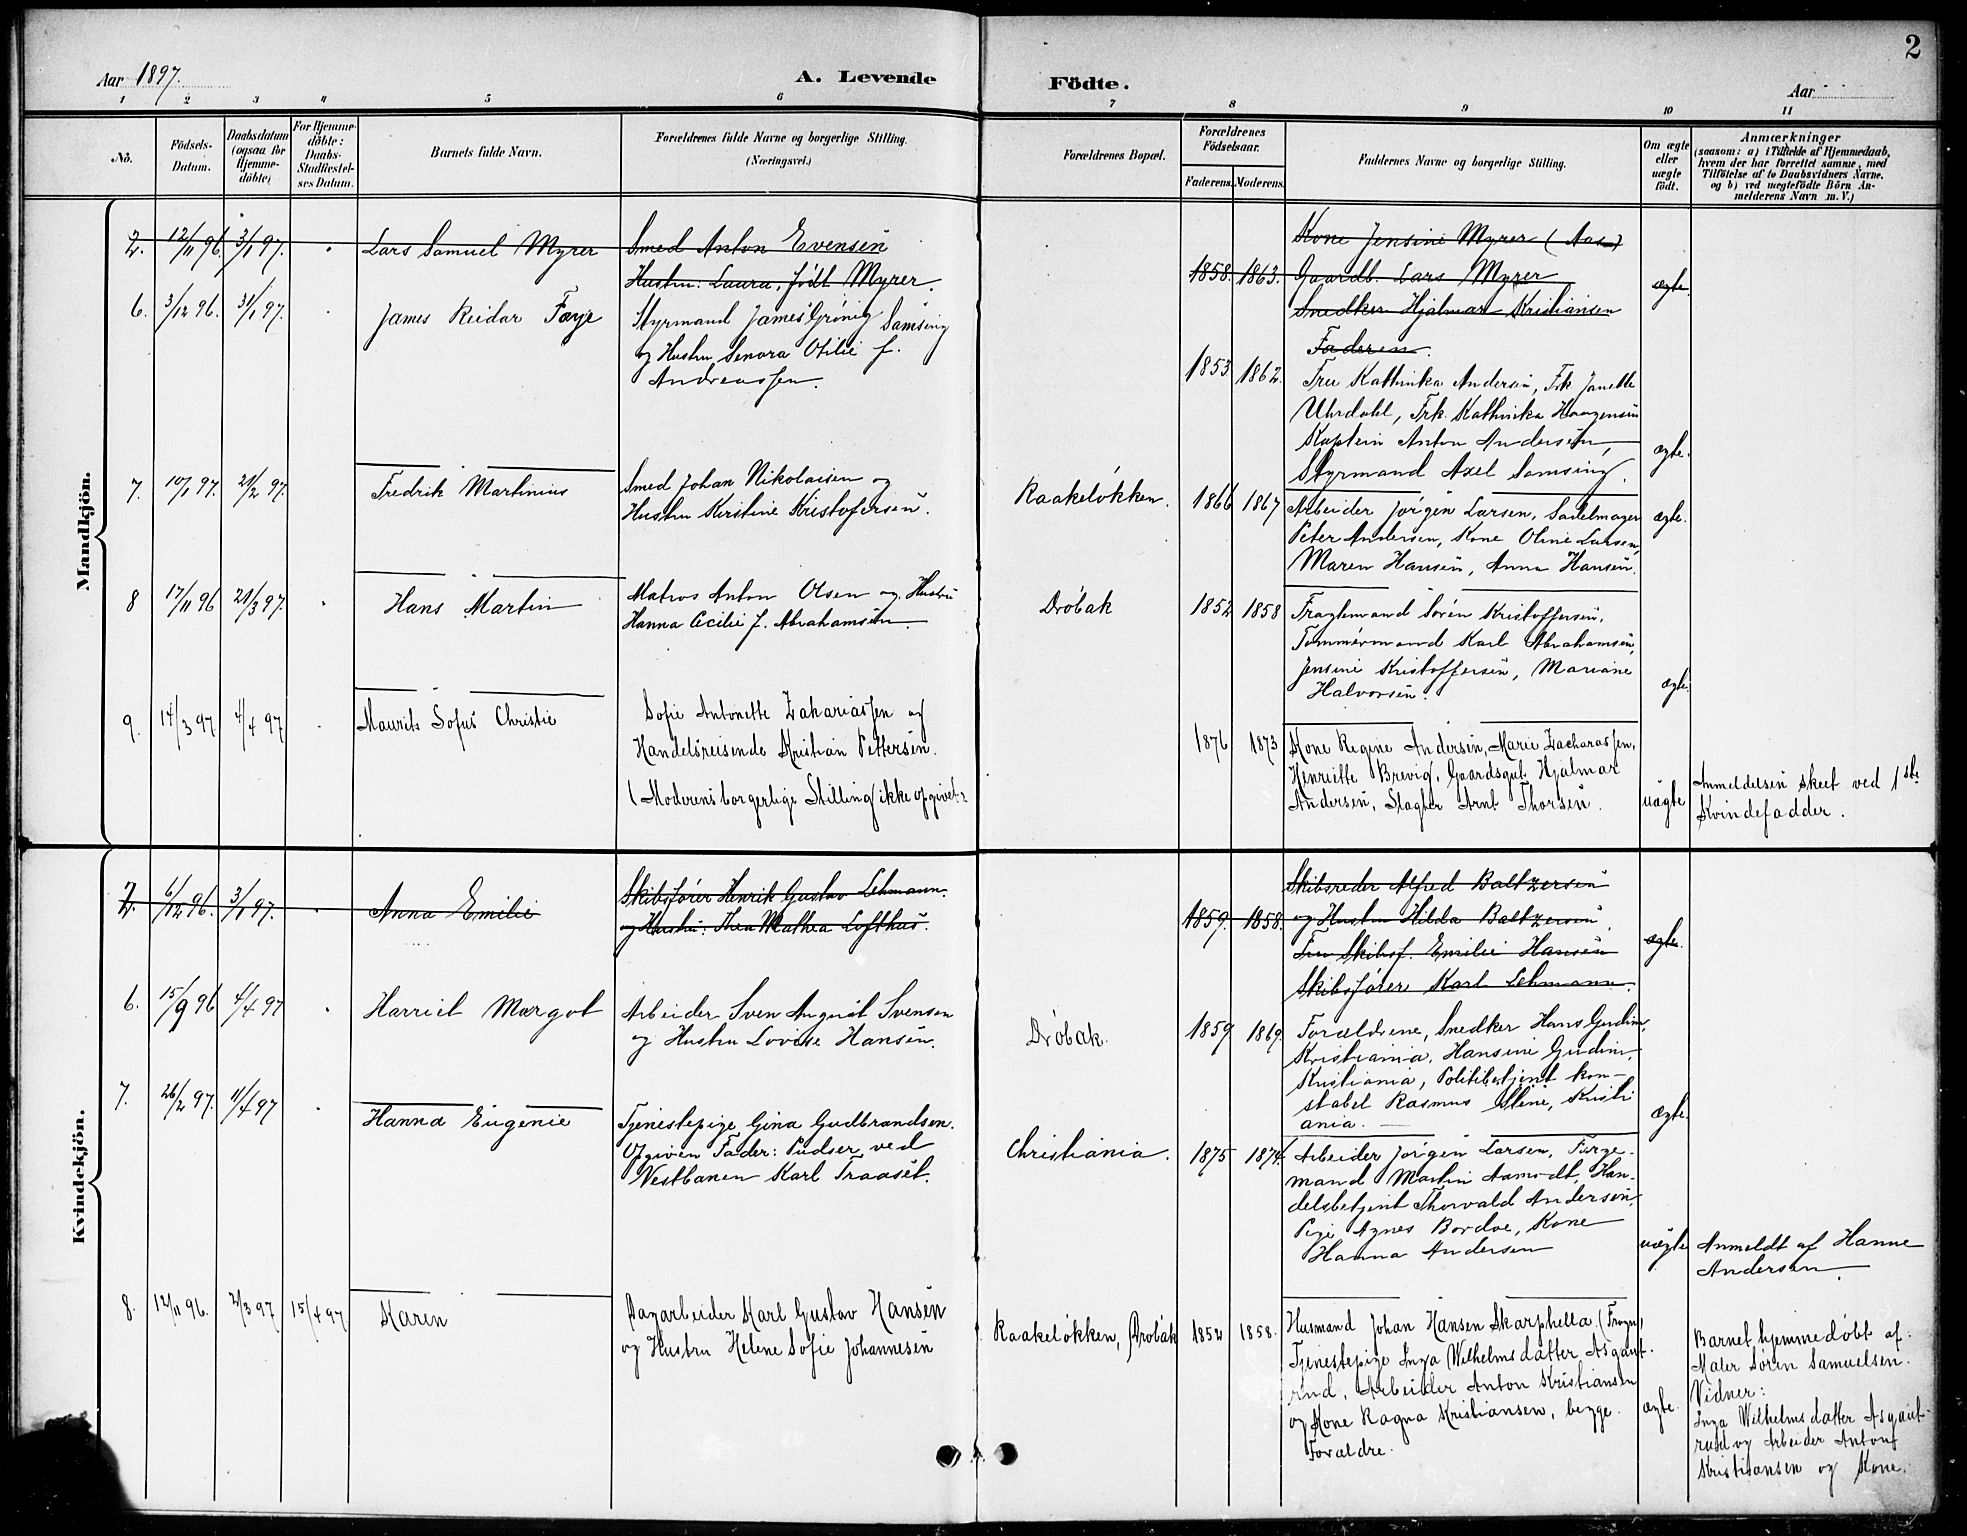 2
Aar 1897.
A. Levende
Födte.
Aar
1 2 3 4 5 6 7 8 9 10 11
No.
Födsels-
Datum.
Daabsdatum
(ogsaa for
Hjemme-
döbte)
For Hjemme-
döbte:
Daabs-
Stadfæstel-
ses Datum.
Barnets fulde Navn.
Forældrenes fulde Navne og borgerlige Stilling.
(Næringsvei.)
Forældrenes Bopæl.
Forældrenes
Födselsaar.
Faderens. Moderens.
Faddernes Navne og borgerlige Stilling.
Om ægte
eller
uægte
födt.
Anmærkninger
(saasom: a) i Tilfælde af Hjemmedaab,
hvem der har forrettet samme, med
Tilföielse af to Daabsvidners Navne.
og b) ved uegtefödte Börn An-
melderens Navn m. V.)
Mandkjön.
2. 12/11 96. 3/1 97. Lars Samuel Myrer
Smed Anton Evensen
Hustru: Laura, født Myrer.
1858. 1863.
Kone Jensine Myrer (Aas)
Gaardb. Lars Myrer
Snedker Hjalmar Kristiansen
Faderen.
ægte.
6. 3/12 96. 31/1 97. James Reidar Faye
Styrmand James Grönig Samsing
og Hustru Senora Otilie f.
Andreassen.
1853 1862.
Fru Kathinka Andersen, Frk Janette
Uhrdahl, Frk. Kathinka Haagensen
Kaptein Anton Andersen,
Styrmand Axel Samsing.
ægte.
7. 10/1 97. 21/2 97. Fredrik Martinius
Smed Johan Nikolaisen og
Hustru Kirstine Kristofersen.
Raakeløkken.
1866 1867
Arbeider Jørgen Larsen, Sadelmager
Peter Andersen, Kone Oline Larsen,
Maren Hansen, Anna Hansen.
ægte.
8 17/11 96 21/3 97. Hans Martin
Matros Anton Olsen og Hustru
Hanna Cecilie f. Abrahamsen
Drøbak
1852 1858
Fragtemand Søren Kristoffersen,
Tømmermand Karl Abrahamsen,
Jensine Kristoffersen, Mariane
Halvorsen.
ægte.
9. 14/3 97 4/4 97 Maurits Sofus Christie
Sofie Antonette Zahariassen og
Handelsreisende Kristian Pettersen.
(Moderens borgerlige Stilling ikke opgivet.)
1876 1873
Kone Regine Andersen, Marie Zacharassen,
Henriette Brevig, Gaardsgut Hjalmar
Andersen, Slagter Arnt Thorsen.
uægte
Anmeldelsen skeet ved 1ste
Kvindefadder.
Kvindekjön.
2. 6/12 96. 3/1 97. Anna Emilie
Skibsfører Henrik Gustav Lehmann.
og Hustru: Thea Mathea Lofthus.
1859. 1858.
Skibsreder Alfred Baltzersen
og Hustru Hilda Baltzersen,
Fru Skibsf. Emilie Hansen
Skibsfører Karl Lehmann.
ægte.
6. 15/9 96 4/4 97 Harriet Margot
Arbeider Sven August Svensen
og Hustru Lovise Hansen.
Drøbak.
1859 1869.
Forældrene, Snedker Hans Gudim,
Kristiania, Hansine Gudim,
Kristiania, Politibetjent kon-
stabel Rasmus Stene, Kristi
ania.
ægte.
7. 26/2 97. 11/4 97 Hanna Eugenie
Tjenestepige Gina Gudbrandsen.
Opgiven Fader: Pudser ved
Vestbanen Karl Traaset.
Christiania.
1875 1874.
Arbeider Jørgen Larsen, Færge-
mand Martin Aamodt, Han-
delsbetjent Thorvald Andersen,
Pige Agnes Bordoe, Kone
Hanna Andersen
uægte
Anmeldt af Hanne
Andersen.
8. 12/11 96. 2/3 97 15/4 97 Karen
Dagarbeider Karl Gustav Hansen
og Hustru Helene Sofie Johannesen
Raakeløkken, Drøbak
1852 1858.
Husmand Johan Hansen Skarphella (Frogn),
Tjenestepige Inga Wilhelmsdatter Asgaut-
rud, Arbeider Anton Kristiansen
og Kone Ragna Kristiansen, begge
Forældre.
ægte.
Barnet hjemmedøbt af
Maler Søren Samuelsen.
Vidner:
Inga Wilhelmsdatter Asgaut-
rud og Arbeider Anton
Kristiansen og Kone.